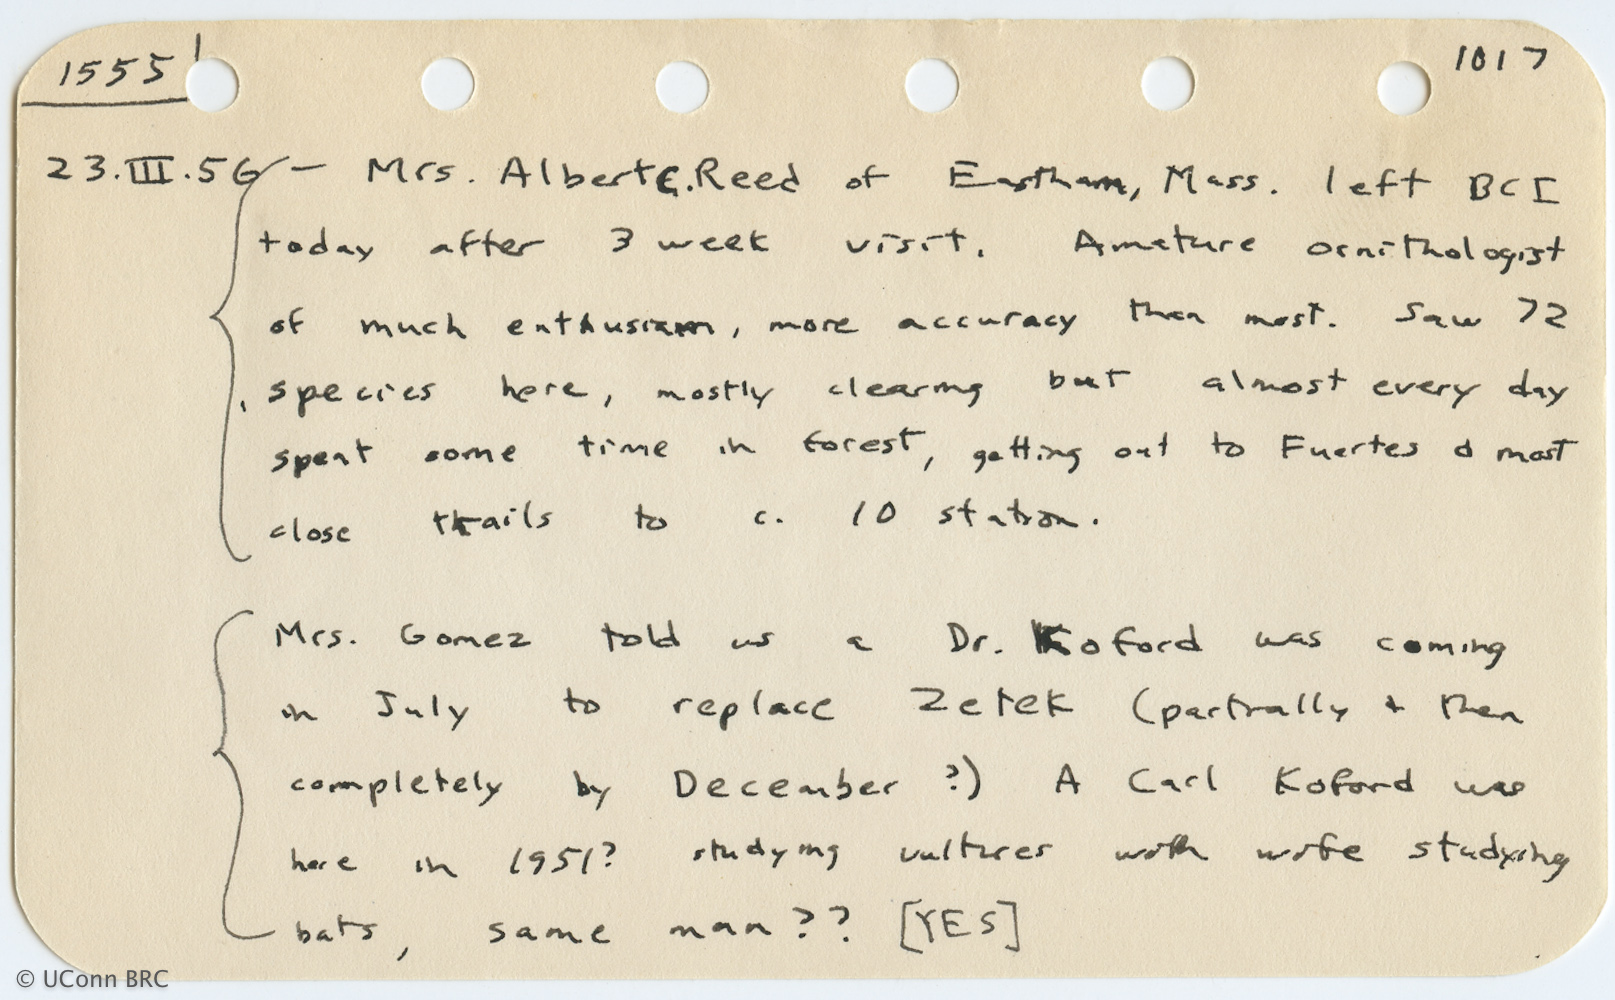 1555 1017
23.III.56 — Mrs. Albert C. Reed of Eastham, Mass. left BCI
today after 3 week visit. Amature ornithologist
of much enthusiasm, more accuracy then most. Saw 72
species here, mostly clearing but almost every day
spent some time in forest, getting out to Fuertes & most
close trails to c. 10 station.
Mrs. Gomez told us a Dr. Koford was coming
in July to replace Zetek (partially + then
completely by December ?) A Carl Koford was
here in 1951? studying vultures with wife studying
bats, same man?? [YES]
© UConn BRC